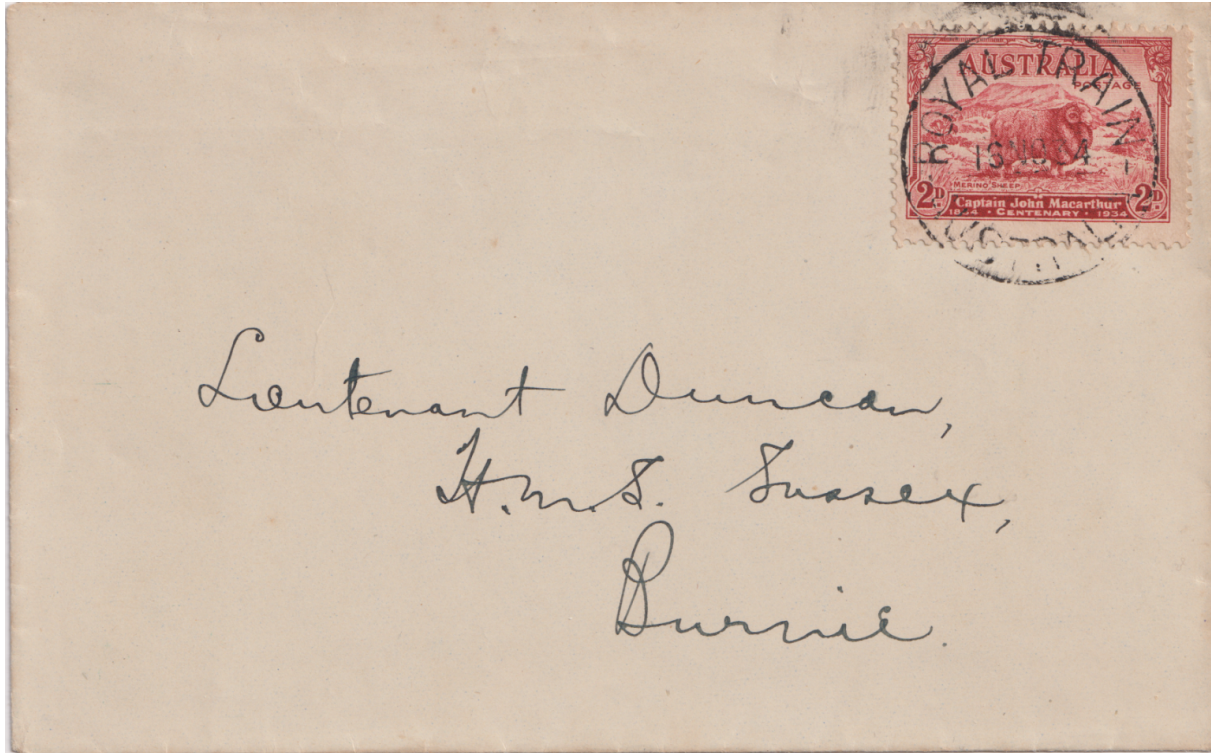 AUSTRALIA
POSTAGE
ROYAL TRAIN
AUSTRALIA
MERINO SHEEP
2D. Captain John Macarthur 2D.
1834 · CENTENARY · 1934
Lieutenant Duncan,
H.M.S. Sussex,
Burnie.